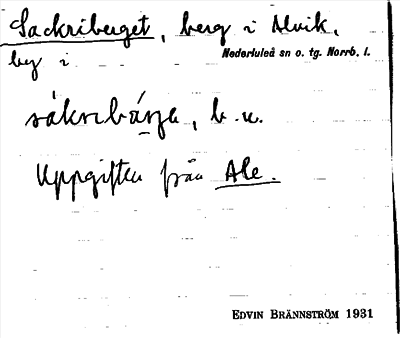 Sackriberget, berg i Alvik,
by i Nederluleå sn o. tg. Norrb. l.
sákribár̲ge, b. u.
Uppgiften från Ale.
EDVIN BRÄNNSTRÖM 1931